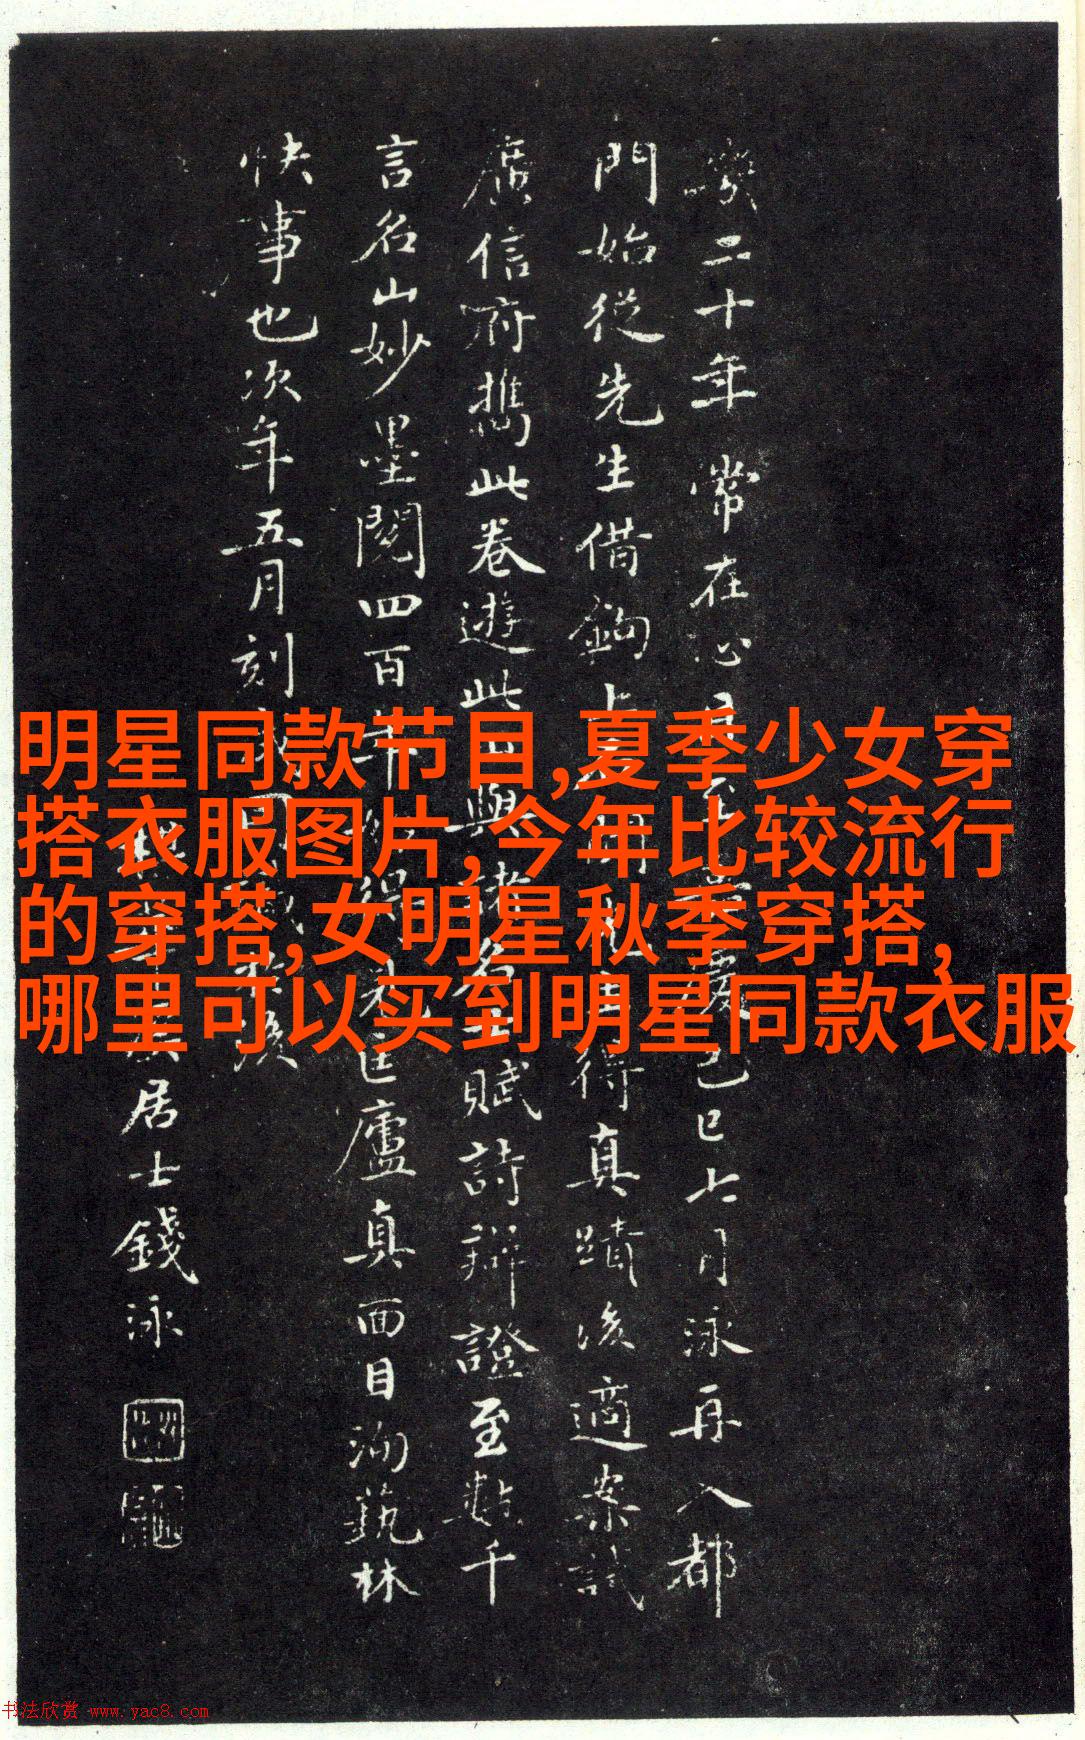 明星同款节目,夏季少女穿
搭衣服图片,今年比较流行
的穿搭,女明星秋季穿搭,
哪里可以买到明星同款衣服
二十年常在心目至嘉慶己巳七月泳再入都
門始從先生借鉤上石聞先生得真蹟後適案試
廣信府攜此卷遊此山與諸名士賦詩辯證至數千
言名山妙墨閱四百年
匡廬真面目洵藝林
快事也次年五月刻
居士錢泳
书法欣赏 www.yac8.com